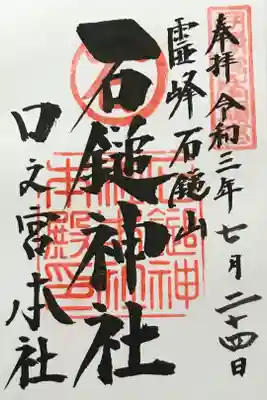 奉拝 令和三年七月二十四日
霊峰 石鎚山
石鎚神社
口之宮本社